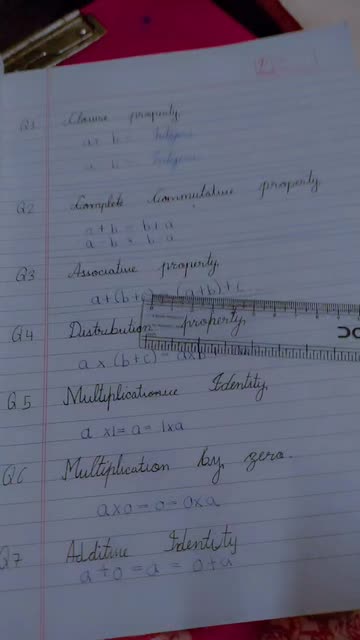 Q1 Closure property
a+ b = Integers
a - b = Integers
Q2 Complete Commutative property
a+b = b+a
a-b = b-a
Q3 Associative property
a+(b+c) = (a+b)+c
Q4 Distribution property
a x (b+c) = ax
Q5 Multiplication Identity
a x1= a = 1xa
Q6 Multiplication by zero.
a x 0 = 0 = 0xa
Q7 Additive Identity
a + 0 = a = 0+a